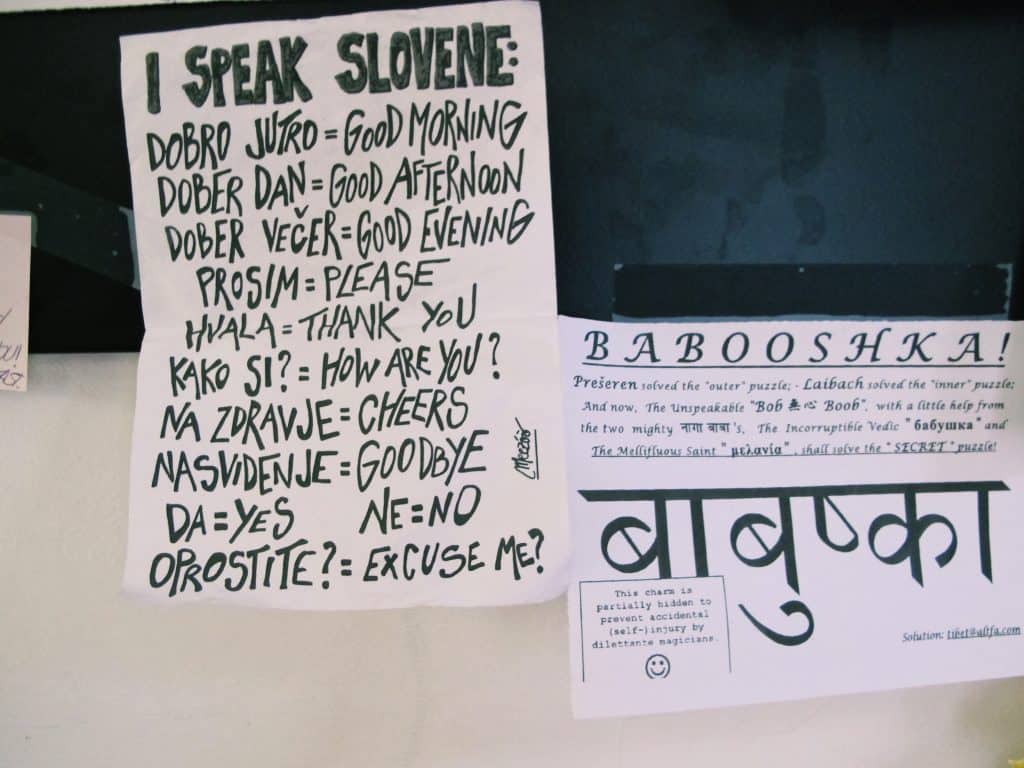 I SPEAK SLOVENE:
DOBRO JUTRO = GOOD MORNING
DOBER DAN = GOOD AFTERNOON
DOBER VEČER = GOOD EVENING
PROSIM = PLEASE
HVALA = THANK YOU
KAKO SI? = HOW ARE YOU?
NA ZDRAVJE = CHEERS
NASVIDENJE = GOODBYE
DA = YES NE = NO
OPROSTITE? = EXCUSE ME?
BABOOSHKA!
Prešeren solved the "outer" puzzle; - Laibach solved the "inner" puzzle;
And now, The Unspeakable "Bob 無心 Boob", with a little help from
the two mighty नागा बाबा's, The Incorruptible Vedic "бабушка" and
The Mellifluous Saint "μελανία", shall solve the "SECRET" puzzle!
बाबुष्का
This charm is
partially hidden to
prevent accidental
(self-)injury by
dilettante magicians.
Solution: tibet@altfa.com